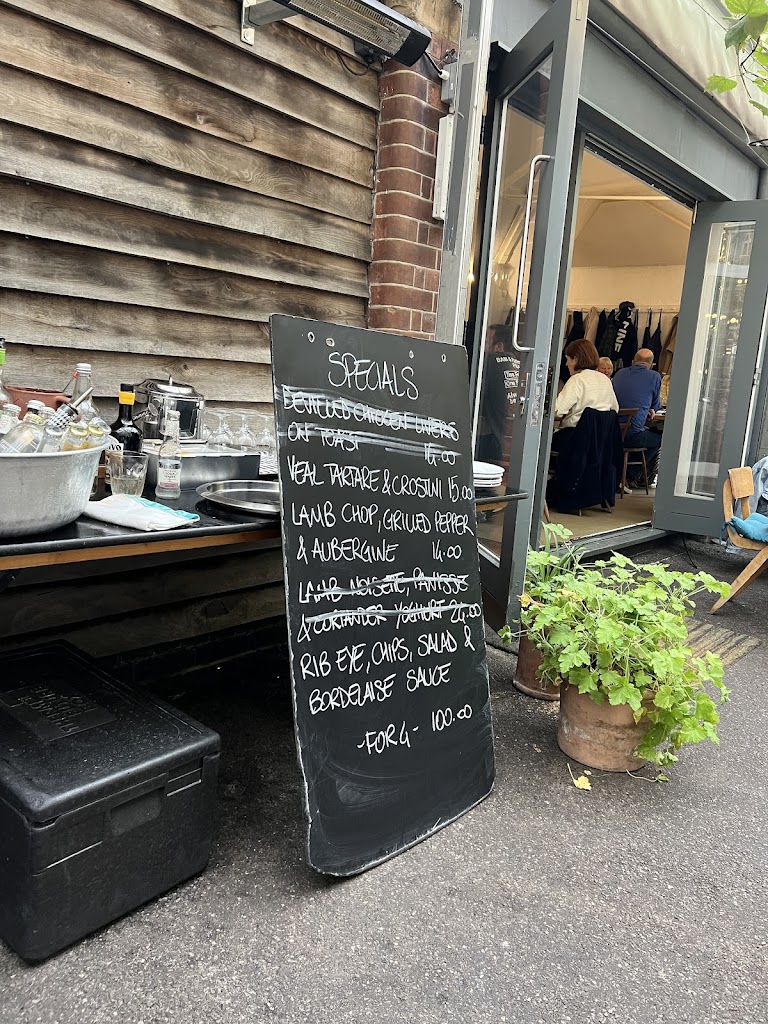 SPECIALS
DEVILLED CHICKEN LIVERS
ON TOAST 14.00
VEAL TARTARE & CROSTINI 15.00
LAMB CHOP, GRILLED PEPPER
& AUBERGINE 14.00
LAMB NOISETTE, PANISSE
& CORIANDER YOGHURT 24.00
RIB EYE, CHIPS, SALAD &
BORDELAISE SAUCE
-FOR 4- 100.00